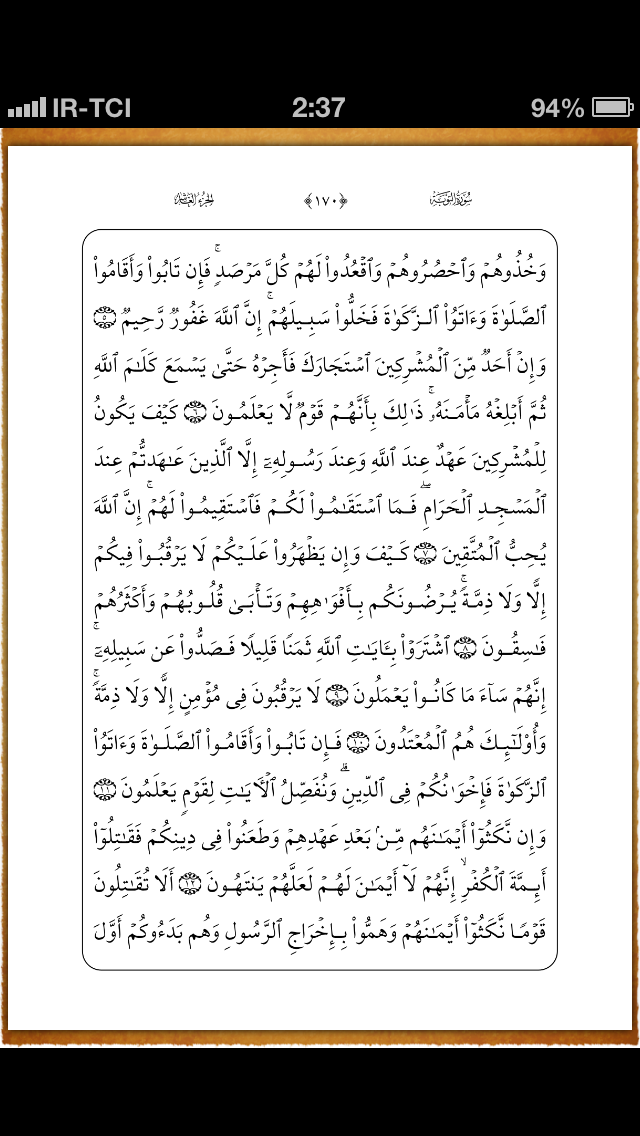 IR-TCI 2:37 94%
سُورَةُ التَّوْبَة ﴿١٧٠﴾ الجُزْءُ العَاشِر
وَخُذُوهُمۡ وَٱحۡصُرُوهُمۡ وَٱقۡعُدُواْ لَهُمۡ كُلَّ مَرۡصَدٖۚ فَإِن تَابُواْ وَأَقَامُواْ
ٱلصَّلَوٰةَ وَءَاتَوُاْ ٱلزَّكَوٰةَ فَخَلُّواْ سَبِيلَهُمۡۚ إِنَّ ٱللَّهَ غَفُورٞ رَّحِيمٞ ۝٥
وَإِنۡ أَحَدٞ مِّنَ ٱلۡمُشۡرِكِينَ ٱسۡتَجَارَكَ فَأَجِرۡهُ حَتَّىٰ يَسۡمَعَ كَلَٰمَ ٱللَّهِ
ثُمَّ أَبۡلِغۡهُ مَأۡمَنَهُۥۚ ذَٰلِكَ بِأَنَّهُمۡ قَوۡمٞ لَّا يَعۡلَمُونَ ۝٦ كَيۡفَ يَكُونُ
لِلۡمُشۡرِكِينَ عَهۡدٌ عِندَ ٱللَّهِ وَعِندَ رَسُولِهِۦٓ إِلَّا ٱلَّذِينَ عَٰهَدتُّمۡ عِندَ
ٱلۡمَسۡجِدِ ٱلۡحَرَامِۖ فَمَا ٱسۡتَقَٰمُواْ لَكُمۡ فَٱسۡتَقِيمُواْ لَهُمۡۚ إِنَّ ٱللَّهَ
يُحِبُّ ٱلۡمُتَّقِينَ ۝٧ كَيۡفَ وَإِن يَظۡهَرُواْ عَلَيۡكُمۡ لَا يَرۡقُبُواْ فِيكُمۡ
إِلّٗا وَلَا ذِمَّةٗۚ يُرۡضُونَكُم بِأَفۡوَٰهِهِمۡ وَتَأۡبَىٰ قُلُوبُهُمۡ وَأَكۡثَرُهُمۡ
فَٰسِقُونَ ۝٨ ٱشۡتَرَوۡاْ بِـَٔايَٰتِ ٱللَّهِ ثَمَنٗا قَلِيلٗا فَصَدُّواْ عَن سَبِيلِهِۦٓۚ
إِنَّهُمۡ سَآءَ مَا كَانُواْ يَعۡمَلُونَ ۝٩ لَا يَرۡقُبُونَ فِي مُؤۡمِنٍ إِلّٗا وَلَا ذِمَّةٗۚ
وَأُوْلَٰٓئِكَ هُمُ ٱلۡمُعۡتَدُونَ ۝١٠ فَإِن تَابُواْ وَأَقَامُواْ ٱلصَّلَوٰةَ وَءَاتَوُاْ
ٱلزَّكَوٰةَ فَإِخۡوَٰنُكُمۡ فِي ٱلدِّينِۗ وَنُفَصِّلُ ٱلۡأٓيَٰتِ لِقَوۡمٖ يَعۡلَمُونَ ۝١١
وَإِن نَّكَثُوٓاْ أَيۡمَٰنَهُم مِّنۢ بَعۡدِ عَهۡدِهِمۡ وَطَعَنُواْ فِي دِينِكُمۡ فَقَٰتِلُوٓاْ
أَئِمَّةَ ٱلۡكُفۡرِۙ إِنَّهُمۡ لَآ أَيۡمَٰنَ لَهُمۡ لَعَلَّهُمۡ يَنتَهُونَ ۝١٢ أَلَا تُقَٰتِلُونَ
قَوۡمٗا نَّكَثُوٓاْ أَيۡمَٰنَهُمۡ وَهَمُّواْ بِإِخۡرَاجِ ٱلرَّسُولِ وَهُم بَدَءُوكُمۡ أَوَّلَ